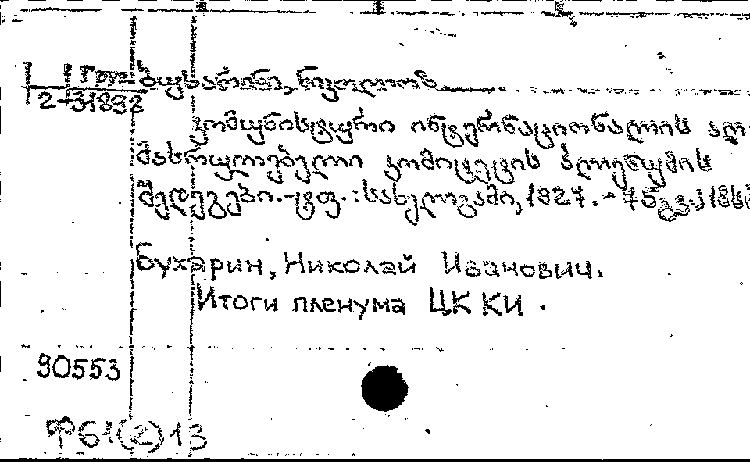 Груз. ბუხარინი, ნიკოლოზ.
2-31892
კომუნისტური ინტერნაციონალის აღ
მასრულებელი კომიტეტის პლენუმის
შედეგები.-ტფ.: სახელგამი, 1927. - 75 გვ.;
Бухарин, Николай Иванович.
Итоги пленума ЦК КИ.
90553
Ф61(2)13